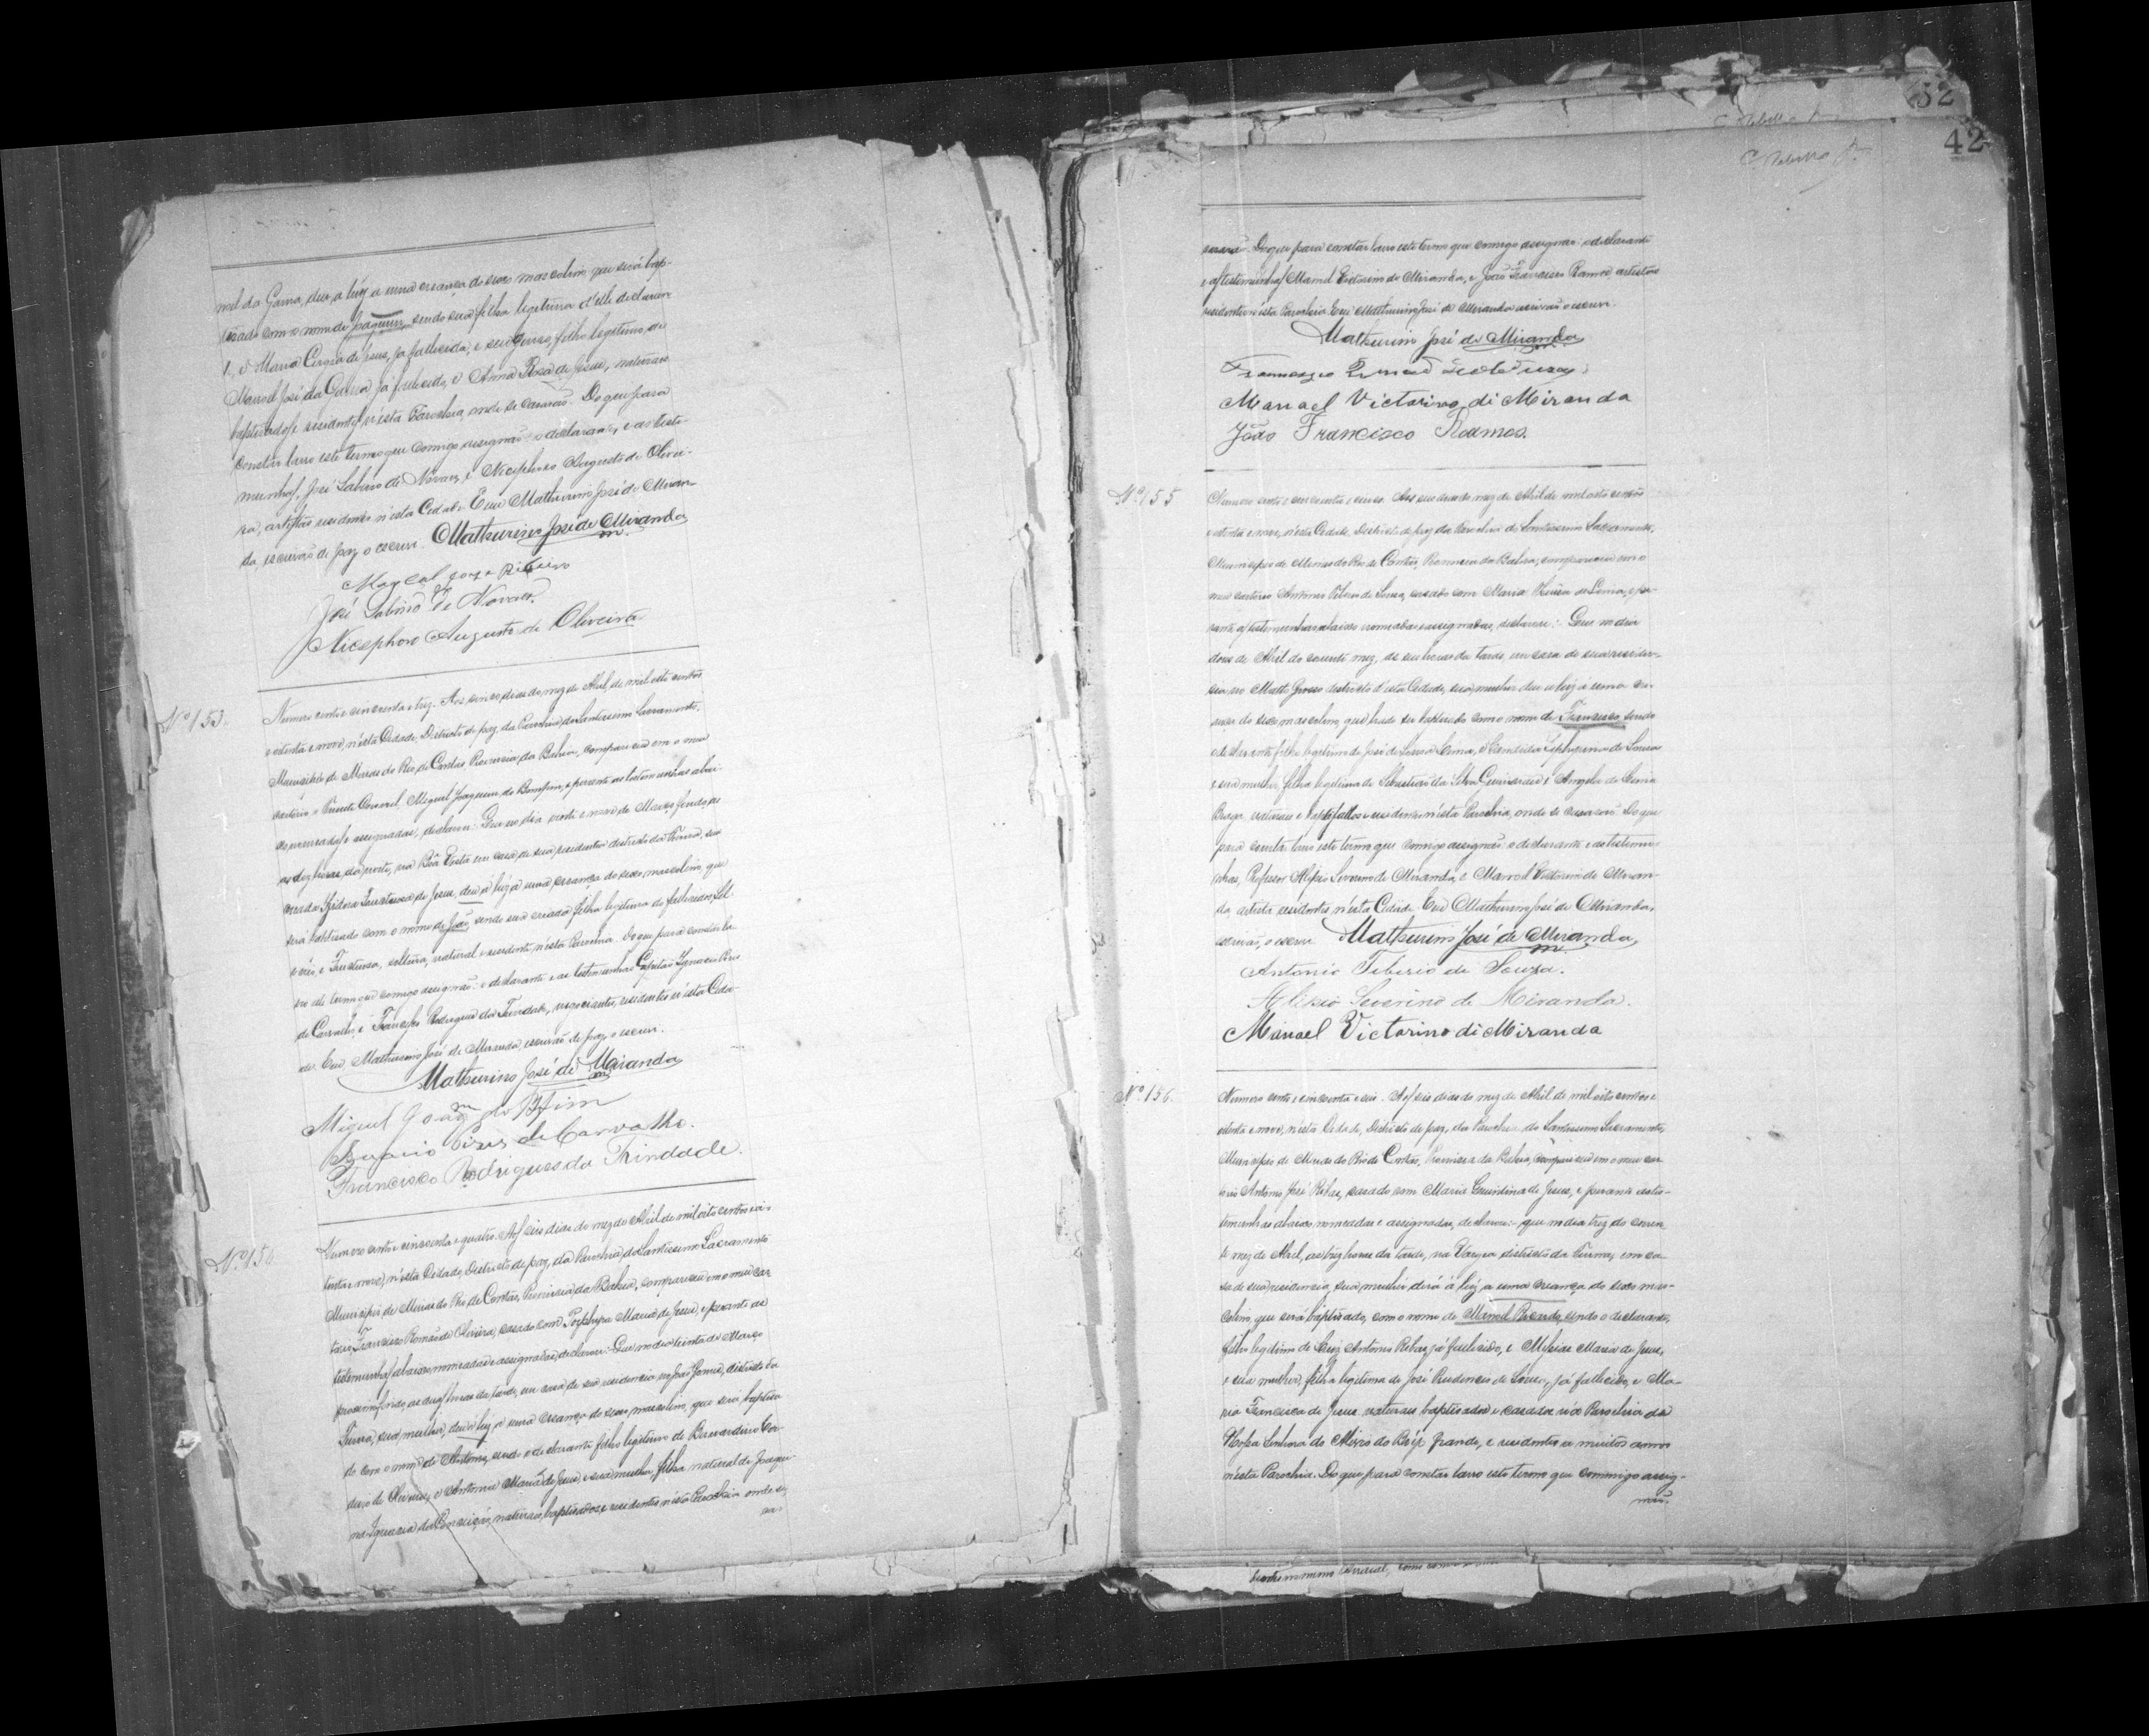 nel da Gama, deu a luz a uma creança do sexo masculino, que será bap-
tisado com o nome de Joaquim, sendo sua filha legitima d'elle declaran-
te, e Maria de Jesus, já fallecida, e seu genro, filho legitimo de
Manoel José da Gama, já fallecido, e Anna Rosa de Jesus, naturaes
baptisados e residentes n'esta Parochia, onde se casarão. Do que para
constar lavro este termo que comigo assignão o declarante, e as teste-
munhas, José Sabino de Novaes, e Nicephoro Augusto de Olivei-
ra, artistas residentes n'esta Cidade. Eu Mathurino José de Miran-
da escrivão de paz o escrevi. Mathurino José de Miranda
Ribeiro
José Sabino de Novaes.
Nicephoro Augusto de Oliveira
Nº 153.
Numero cento e cincoenta e trez. Aos cinco dias do mez de Abril, de mil oito centos
e oitenta e nove, n'esta Cidade, Districto de paz da Parochia do Santissimo Sacramento,
Municipio de Minas do Rio de Contas Provincia da Bahia, compareceu em o meu
cartorio o Tenente Coronel Miguel Joaquim do Bomfim, e perante as testemunhas abai-
xo nomeadas e assignadas, declarou: Que no dia vinte e nove de Março findo, as
as dez horas da noite, na Bôa Vista em casa de sua residencia districto da Furna, sua
creada Izidora de Jesus, deu a luz a uma creança do sexo masculino, que
será baptisado com o nome de João, sendo sua creada filha legitima de fallecidos
e Fructuosa, solteira, natural e residente n'esta Parochia. Do que para constar la-
vro este termo que comigo assignão o declarante e as testemunhas Capitão Ignacio Pires
de Carvalho, e Francisco Rodrigues da Trindade, negociantes, residentes n'esta Cida-
de. Eu, Mathurino José de Miranda, escrivão de paz, o escrevi.
Mathurino José de Miranda
Miguel Joaqm do Bfim
Ignacio Pires de Carvalho.
Francisco Rodrigues da Trindade.
Nº 15
Numero cento e cincoenta e quatro. Aos seis dias do mez de Abril de mil oito centos e oi-
tenta e nove, n'esta Cidade, Districto de paz, da Parochia do Santissimo Sacramento
Municipio de Minas do Rio de Contas, Provincia da Bahia, compareceu em o meu car-
torio Francisco Romão de Oliveira, casado com Porphyra Maria de Jesus, e perante as
testemunhas abaixo nomeadas e assignadas, declarou: Que no dia trinta de Março
proximo findo, as duas horas da tarde, em casa de sua residencia no João Gomes, districto da
Furna, sua mulher, deu a luz a uma creança do sexo masculino, que será baptisa-
do com o nome de Antonio, sendo o declarante filho legitimo de Bernardino Cor-
deiro de Oliveira, e Antonia Maria de Jesus, e sua mulher, filha natural de Joaqui-
na Ignacia da Conceição, naturaes, baptisados e residentes n'esta Parochia onde se
ca-
52
42
sarão. Do que para constar lavro este termo que comigo assignão o declarante
e as testemunhas Manoel Victorino de Miranda, e João Francisco Ramos artistas
residentes n'esta Parochia. Eu Mathurino José de Miranda escrivão o escrevi.
Mathurino José de Miranda
Manoel Victorino di Miranda
João Francisco Ramos.
Nº 155
Numero cento e cincoenta e cinco. Aos seis dias do mez de Abril de mil oito centos
e oitenta e nove, n'esta Cidade, Districto de paz da Parochia do Santissimo Sacramento,
Municipio de Minas do Rio de Contas, Provincia da Bahia, compareceu em o
meu cartorio Antonio Tiberio de Souza, casado com Maria de Lima, e pe-
rante as testemunhas abaixo nomeadas e assignadas, declarou: Que no dia
dous de Abril do corrente mez, as seis horas da tarde, em casa de sua residen-
cia no Matto Grosso districto d'esta Cidade, sua mulher deu a luz a uma cre-
ança do sexo masculino, que hade ser baptisado com o nome de Francisco, sendo
o declarante filho legitimo de José de Souza Lima, e Candida de Souza
e sua mulher, filha legitima de Sebastião da Silva Guimarães e Angela de Lima
Braga, naturaes e baptisados e residentes n'esta Parochia, onde se casarão. Do que
para constar lavro este termo que comigo assignão o declarante e as testemu-
nhas, Professor Alipio Severino de Miranda, e Manoel Victorino de Miran-
da artista residentes n'esta Cidade. Eu Mathurino José de Miranda,
escrivão, o escrevi. Mathurino José de Miranda,
Antonio Tiberio de Souza.
Alipio Severino de Miranda.
Manoel Victorino di Miranda
Nº 156.
Numero cento e cincoenta e seis. Aos seis dias do mez de Abril de mil oito centos e
oitenta e nove, n'esta Cidade, Districto de paz, da Parochia do Santissimo Sacramento,
Municipio de Minas do Rio de Contas, Provincia da Bahia, compareceu em o meu car-
torio Antonio José Ribas, casado com Maria de Jesus, e perante as tes-
temunhas abaixo nomeadas e assignadas, declarou: que no dia trez do corren-
te mez de Abril, as trez horas da tarde, na Varzea districto da Furna, em ca-
sa de sua residencia, sua mulher dera á luz a uma creança do sexo mas-
culino, que será baptisado, com o nome de Manoel Ricardo, sendo o declarante,
filho legitimo de Luiz Antonio Ribas, já fallecido, e Messias Maria de Jesus,
e sua mulher, filha legitima de José Prudencio de Souza, já fallecido, e Ma-
ria Francisca de Jesus, naturaes baptisados e casados na Parochia de
Nossa Senhora do Allivio do Brejo Grande, e residentes a muitos annos
n'esta Parochia. Do que para constar lavro este termo que commigo assig-
não.